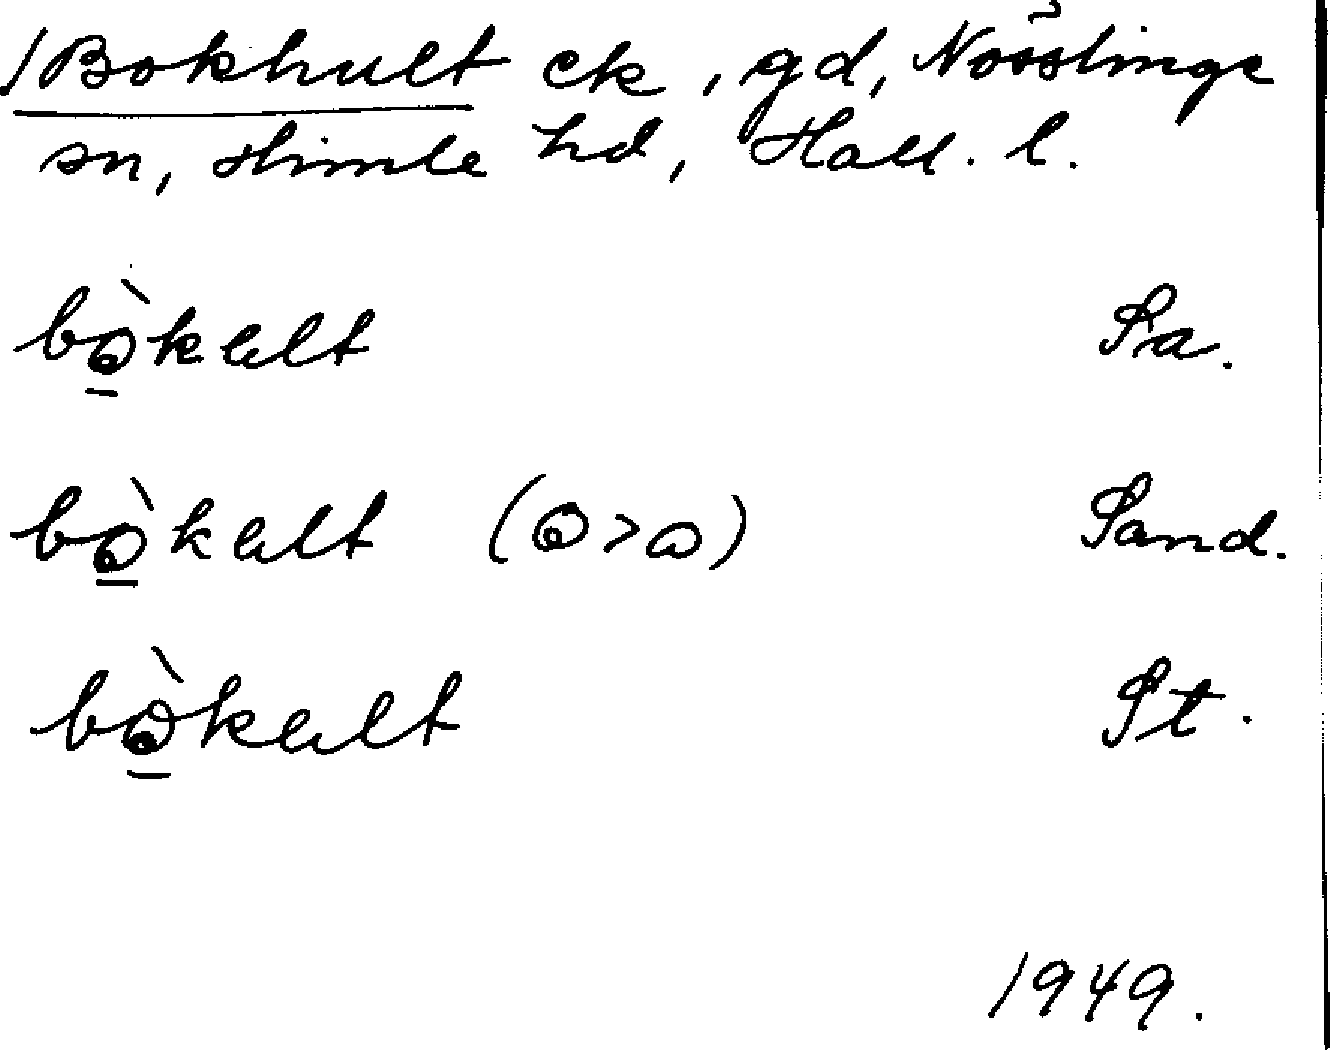 /Bokhult ck, gd, Nösslinge
sn, Himle hd, Hall. l.
bò̱kalt Sa.
bò̱kalt (ɷ>ɷ) Sand.
bò̱kalt St.
1949.